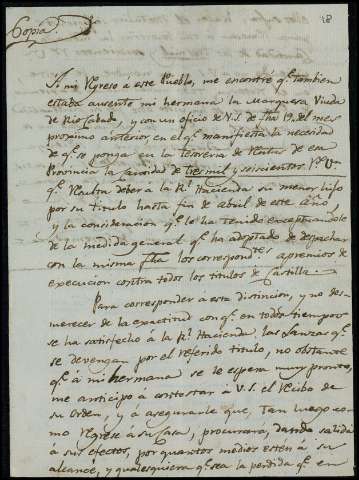 48
Copia
A mi regreso á este Pueblo, me encontré qe. tambien
estaba ausente mi hermana la Marquesa Viuda
de Rio Cabado, y con un oficio de V.S. de fha 19. del mes
proximo anterior, en el qe. manifiesta la necesidad
de qe. se ponga en la tesoreria de Rentas de esa
Provincia la cantidad de tres mil y seiscientos rs. vn
qe. resulta deber á la Rl. Hacienda su menor hijo
por su titulo hasta fin de abril de este año,
y la consideración qe. le ha tenido exceptuandole
de la medida general qe. ha adoptado de despachar
con la misma fha los correspondtes. apremios de
execucion contra todos los titulos de Castilla.
Para corresponder a esta distincion, y no des-
merecer de la exactitud con qe. en todos tiempos
se ha satisfecho á la Rl. Hacienda las Lanzas qe.
se devengan por el referido titulo, no obstante
qe. á mi hermana se le espera muy pronto,
me anticipo a contestar á V.S. el recibo de
su orden, y á asegurarle que, tan luego co-
mo regrese á su Casa, procurará, dando salida
á sus efectos, por quantos medios estén á su
alcance, y qualesquiera qe. sea la perdida qe. en